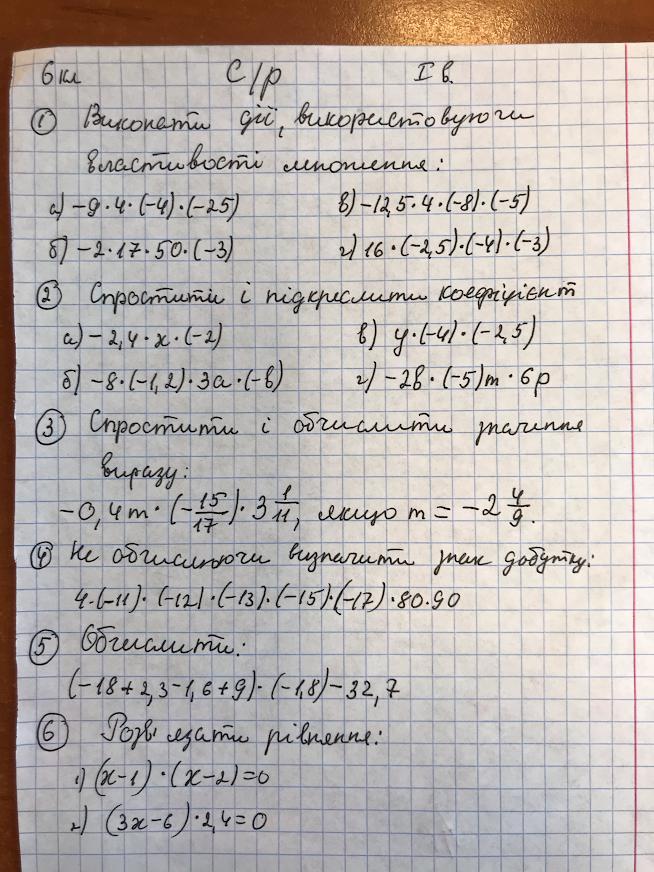 6 кл С/р I в.
① Виконати дії, використовуючи
властивості множення:
а) -9·4·(-4)·(-25) в) -12,5·4·(-8)·(-5)
б) -2·17·50·(-3) г) 16·(-2,5)·(-4)·(-3)
② Спростити і підкреслити коефіцієнт
а) -2,4·x·(-2) в) y·(-4)·(-2,5)
б) -8·(-1,2)·3a·(-b) г) -2b·(-5)m·6p
③ Спростити і обчислити значення
виразу:
-0,4m·(-15/17)·3 1/11, якщо m = -2 4/9.
④ Не обчислюючи визначити знак добутку:
4·(-11)·(-12)·(-13)·(-15)·(-17)·80·90
⑤ Обчислити:
(-18+2,3-1,6+9)·(-1,8)-32,7
⑥ Розв'язати рівняння:
1) (x-1)·(x-2)=0
2) (3x-6)·2,4=0